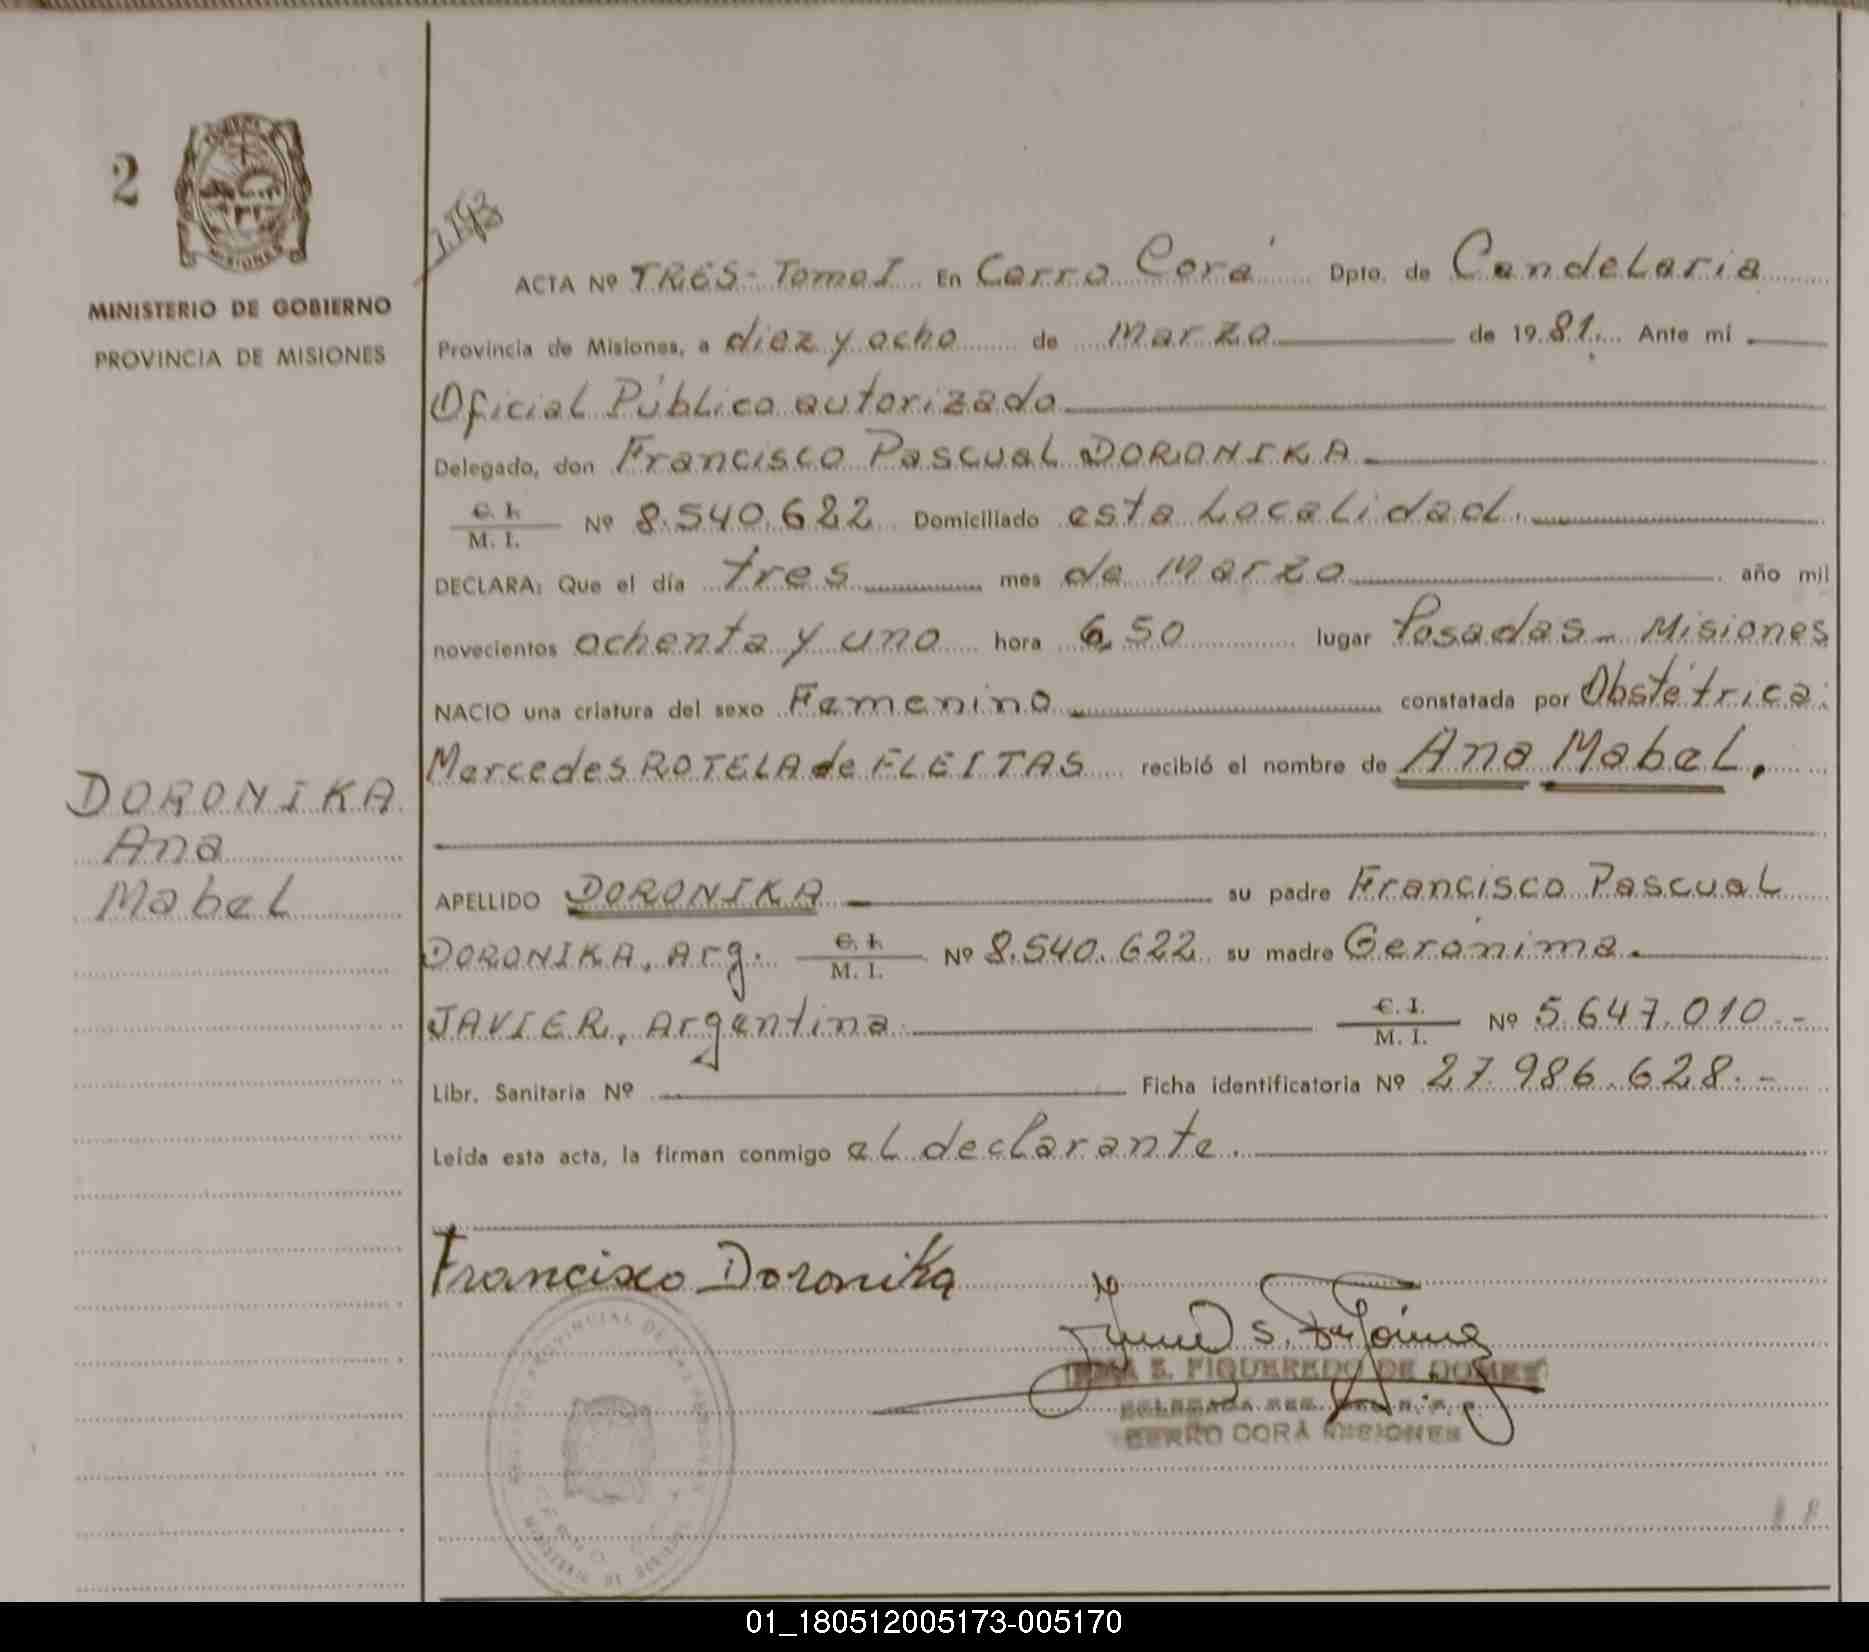 2
MINISTERIO DE GOBIERNO
PROVINCIA DE MISIONES
ACTA Nº TRES - Tomo I En Cerro Corá Dpto. de Candelaria
Provincia de Misiones, a diez y ocho de Marzo de 1981. Ante mí
Oficial Público autorizado
Delegado, don Francisco Pascual DORONIKA
C. I.
M. I. Nº 8.540.622 Domiciliado esta Localidad.
DECLARA: Que el día tres mes de Marzo año mil
novecientos ochenta y uno hora 6,50 lugar Posadas - Misiones
NACIO una criatura del sexo Femenino constatada por Obstétrica
Mercedes ROTELA de FLEITAS recibió el nombre de Ana Mabel.
DORONIKA
Ana
Mabel
APELLIDO DORONIKA su padre Francisco Pascual
DORONIKA, Arg. C. I. M. I. Nº 8.540.622 su madre Gerónima
JAVIER, Argentina C. I. M. I. Nº 5.647.010.-
Libr. Sanitaria Nº Ficha identificatoria Nº 27.986.628.-
Leída esta acta, la firman conmigo el declarante.
Francisco Doronika
S. FIGUEREDO DE
CERRO CORÁ MISIONES
01_180512005173-005170